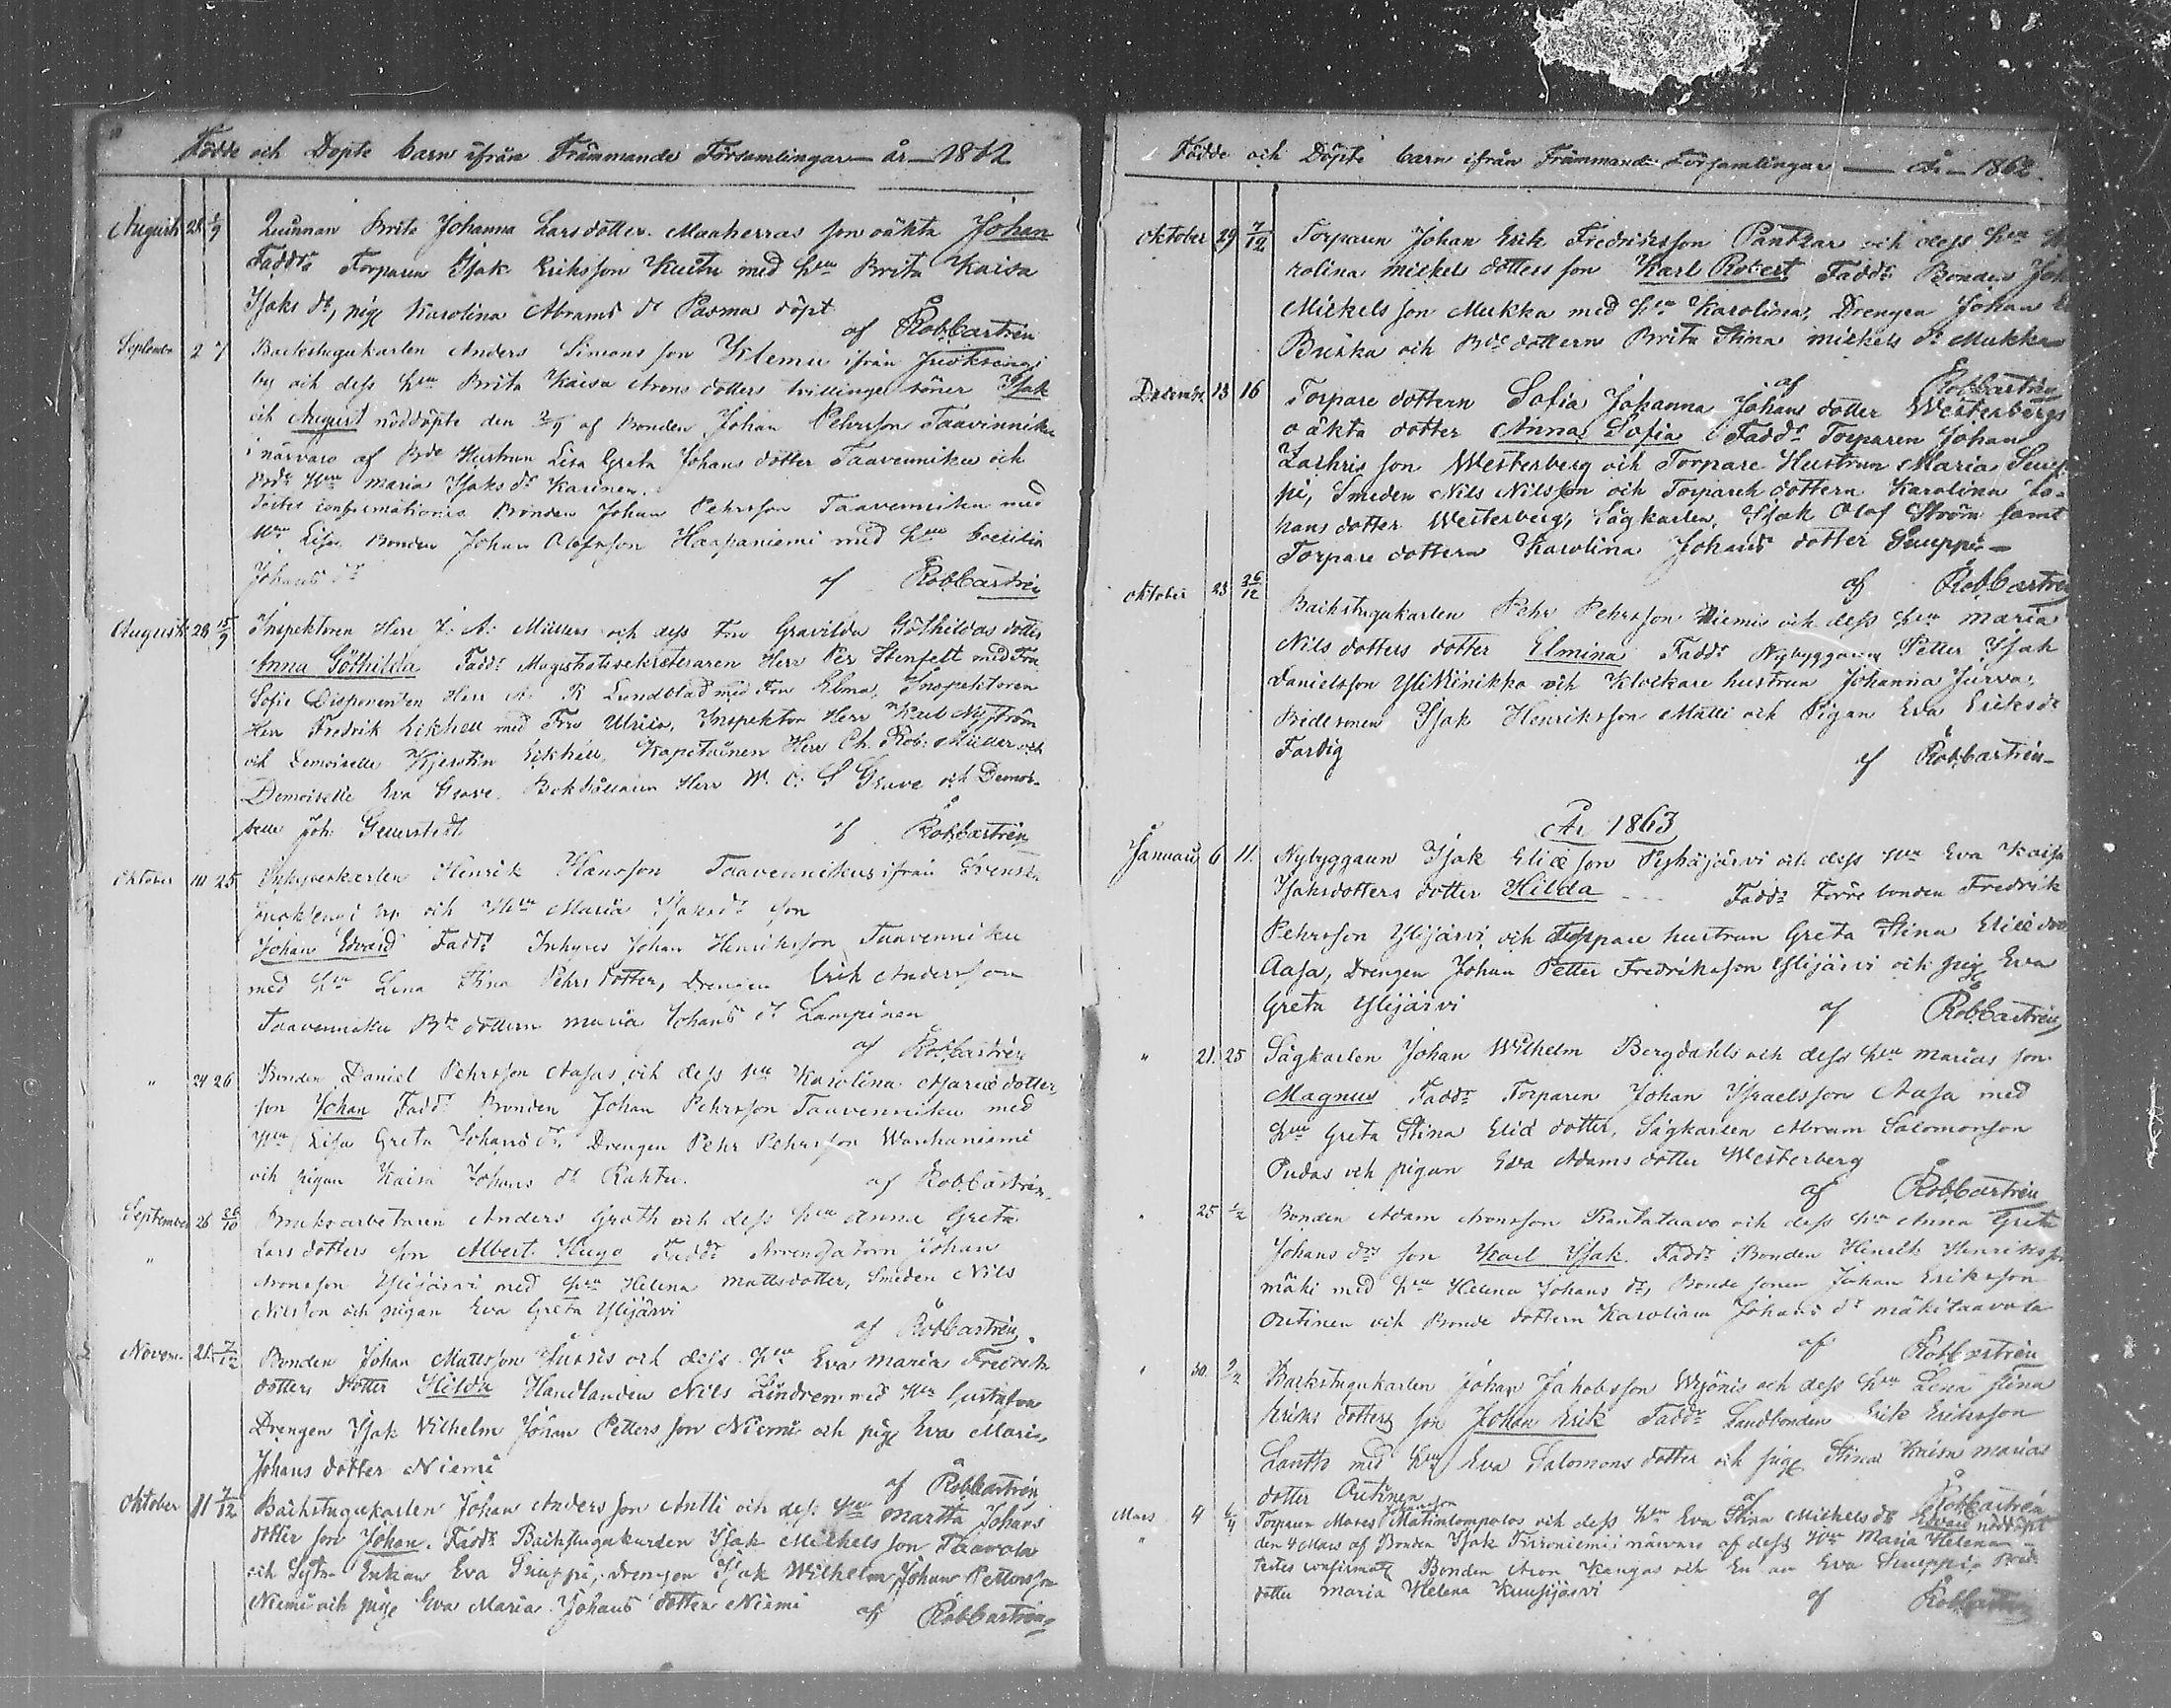 Födde och Döpte barn ifrån Främmande Församlingar år 1862
Augusti 28 1/9 Brita Johanna Larsdotter Maaherras son oäkta Johan
Fadd. Torparen Isak Eriksson med Hu Brita Kaisa
Isaks dr, pig Karolina Abrams dr Pasma döpt
af Rob Castrén
September 2 7 Backstugukarlen Anders Simons son ifrån
by och dess Hu Brita Kaisa Arons dotters tvillinge söner Isak
och August nöddöpte den 2/9 af Bonden Johan Pehrsson Taavinniku
i närvaro af Bde Hustrun Lisa Greta Johans dotter Taavenniku och
Bde Hun Maria Isaks dr Karinen.
Testes confirmationis Bonden Johan Pehrsson Taavenniku med
Hu Lisa Bonden Johan Olofsson Haapaniemi med Hu
Johans dr af Rob Castrén
Augusti 28 15/9 Inspektoren Herr J. A. Müllers och dess Fru Gravilda Göthildas dotter
Anna Göthilda Fadd. Magistratssekreteraren Herr Per Stenfelt med Fru
Sofie Disponenten Herr A. R Lundblad med Fru Elma, Inspektoren
Herr Fredrik Ekhell med Fru Ulrica, Inspektor Herr Karl Nyström
och Demoiselle Kjerstin Ekhell, Kapetainen Herr Ch. Rob. Müller och
Demoiselle Eva Grave. Bokhållaren Herr W. C. S Grave och Demoi-
selle Joh. af Rob Castrén
Oktober 10 25 Inhyseskarlen Henrik Hansson Taavennikus ifrån Svensk
by och Hu Maria Isaks dr son
Johan Edvard Fadd. Inhyses Johan Henriksson Taavenniku
med Hu Lena Stina Pehrs dotter, Drengen Erik Andersson
Taavenniku Bde dottern Maria Johans dr Lampinen
af Rob Castrén
" 24 26 Bonden Daniel Pehrsson Aasas och dess Hu Karolina dotter
son Johan Fadd. Bonden Johan Pehrsson Taavenniku med
Hu Lisa Greta Johans dr. Drengen Pehr Pehrsson Wanhaniemi
och pigan Kaisa Johans dr Rahtu. af Rob Castrén
September 26 26/10 Bruksarbetaren Anders Groth och dess Hu Anna Greta
" Lars dotters son Albert Hugo Fadd. Arrendatorn Johan
Aronsson Ylijärvi med Hu Helena Mattsdotter, Smeden Nils
Nilsson och pigan Eva Greta Ylijärvi
af Rob Castrén
Novem. 21 7/12 Bonden Johan Mattsson och dess Hu Eva Maria Fredriks
dotters dotter Hilda Handlanden Nils Lindgren med Hu Gustafva
Drengen Isak Vilhelm Johan Petters son Niemi och pig Eva Maria
Johans dotter Niemi
af Rob Castrén
Oktober 11 7/12 Backstugukarlen Johan Anders son Antti och dess Hu Martta Johans
dotter son Johan. Fadd. Backstugukarlen Isak Michels son Taavola
och Syt. Enkan Eva Snuppi, drengen Isak Wilhelm Johan Pettersson
Niemi och pig Eva Maria Johans dotter Niemi af Rob Castrén
Födde och Döpte barn ifrån Främmande Församlingar År 1862.
Oktober 29 7/12 Torparen Johan Erik Fredriksson Pantzar och dess Hu
rolina Mickels dotters son Karl Robert Fadd. Bonden Joh
Mickelsson Mukka med Hu Karolina, Drengen Johan
Briska och Bde dottern Brita Stina Mickels dr Mukka
af Rob Castrén
December 13 16 Torpare dottern Sofia Johanna Johans dotter Westerbergs
oäkta dotter Anna Sofia Fadd. Torparen Johan
Zachris son Westerberg och Torpare Hustrun Maria Snup
pi, Smeden Nils Nilsson och Torpare dottern Karolina Jo-
hans dotter Westerberg, Sågkarlen, Isak Olof Ström samt
Torpare dottern Karolina Johans dotter Snuppi
af Rob Castrén
Oktober 23 26/12 Backstugukarlen Pehr Pehrsson Niemis och dess Hu Maria
Nils dotters dotter Elmina Fadd. Nybyggaren Petter Isak
Danielsson YliNinikka och Klockare hustrun Johanna Jurva,
Bondesonen Isak Henriksson Matti och Pigan Eva Eriks dr
Fardig af Rob Castrén
År 1863
Januari 6 11. Nybyggaren Isak Eliæ son Pyhäjärvi och dess Hu Eva Kaisa
Isaksdotters dotter Hilda Fadd. Förre bonden Fredrik
Pehrsson Ylijärvi och Torpare hustrun Greta Stina Eliæ dr
Aasa, Drengen Johan Petter Fredriksson Ylijärvi och pig Eva
Greta Ylijärvi af Rob Castrén
" 21. 25 Sågkarlen Johan Wilhelm Bergdahls och dess Hu Marias son
Magnus Fadd. Torparen Johan Israelsson Aasa med
Hu Greta Stina Eliæ dotter, Sågkarlen Abram Salomonson
Pudas och pigan Eva Adams dotter Westerberg
af Rob Castrén
" 25 1/2 Bonden Adam Aronsson Rantataavo och dess Hu Anna Greta
Johans drs son Karl Isak. Fadd. Bonden Henrik Henriksson
mäki med Hu Helena Johans dr, Bonde sonen Johan Eriksson
Outinen och Bonde dottern Karolina Johans dr Mäkitaavola
af Rob Castrén
" 30. 2/2 Backstugukarlen Johan Jakobsson och dess Hu Lena Stina
Eriks dotters son Johan Erik Fadd. Landbonden Erik Eriksson
Lantto med Hu Eva Salomons dotter och pig Stina Kaisa Marias
dotter Outinen af Rob Castrén
Mars 4 6/4 Torparen Moses Johansson Matinlompolos och dess Hu Eva Stina Michels drs Edvard nöddöpt
" den 4 Mars af Bonden Isak i närvaro af dess Hu Maria Helena
testes confirmat. Bonden Aron Kangas och Enkan Eva Snuppi, Bde
dotter Maria Helena Kuusijärvi af Rob Castrén